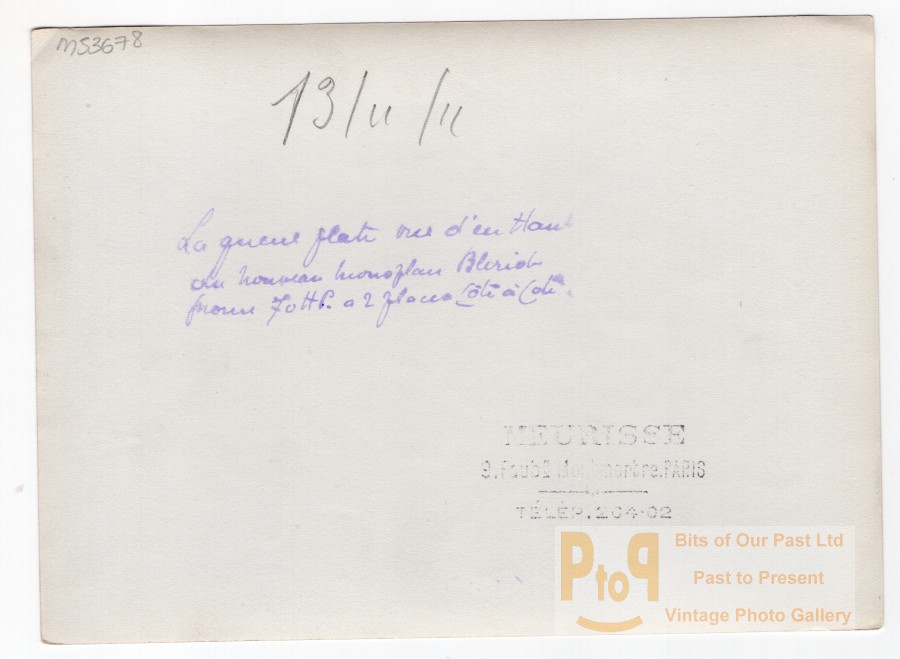 MS3678
13/11/11
La queue plate vue d'en Haut
du nouveau monoplan Bleriot
70 HP. a 2 places Côte à Côte.
MEURISSE
9. Faubg Montmartre. PARIS
TÉLÉP. 204-02
PtoP
Bits of Our Past Ltd
Past to Present
Vintage Photo Gallery